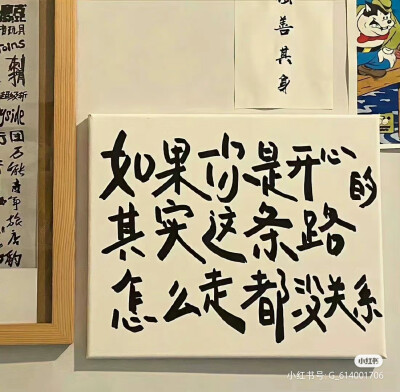 如果你是开心的
其实这条路
怎么走都没关系
善其身
刺
小红书
小红书号: G_614001706